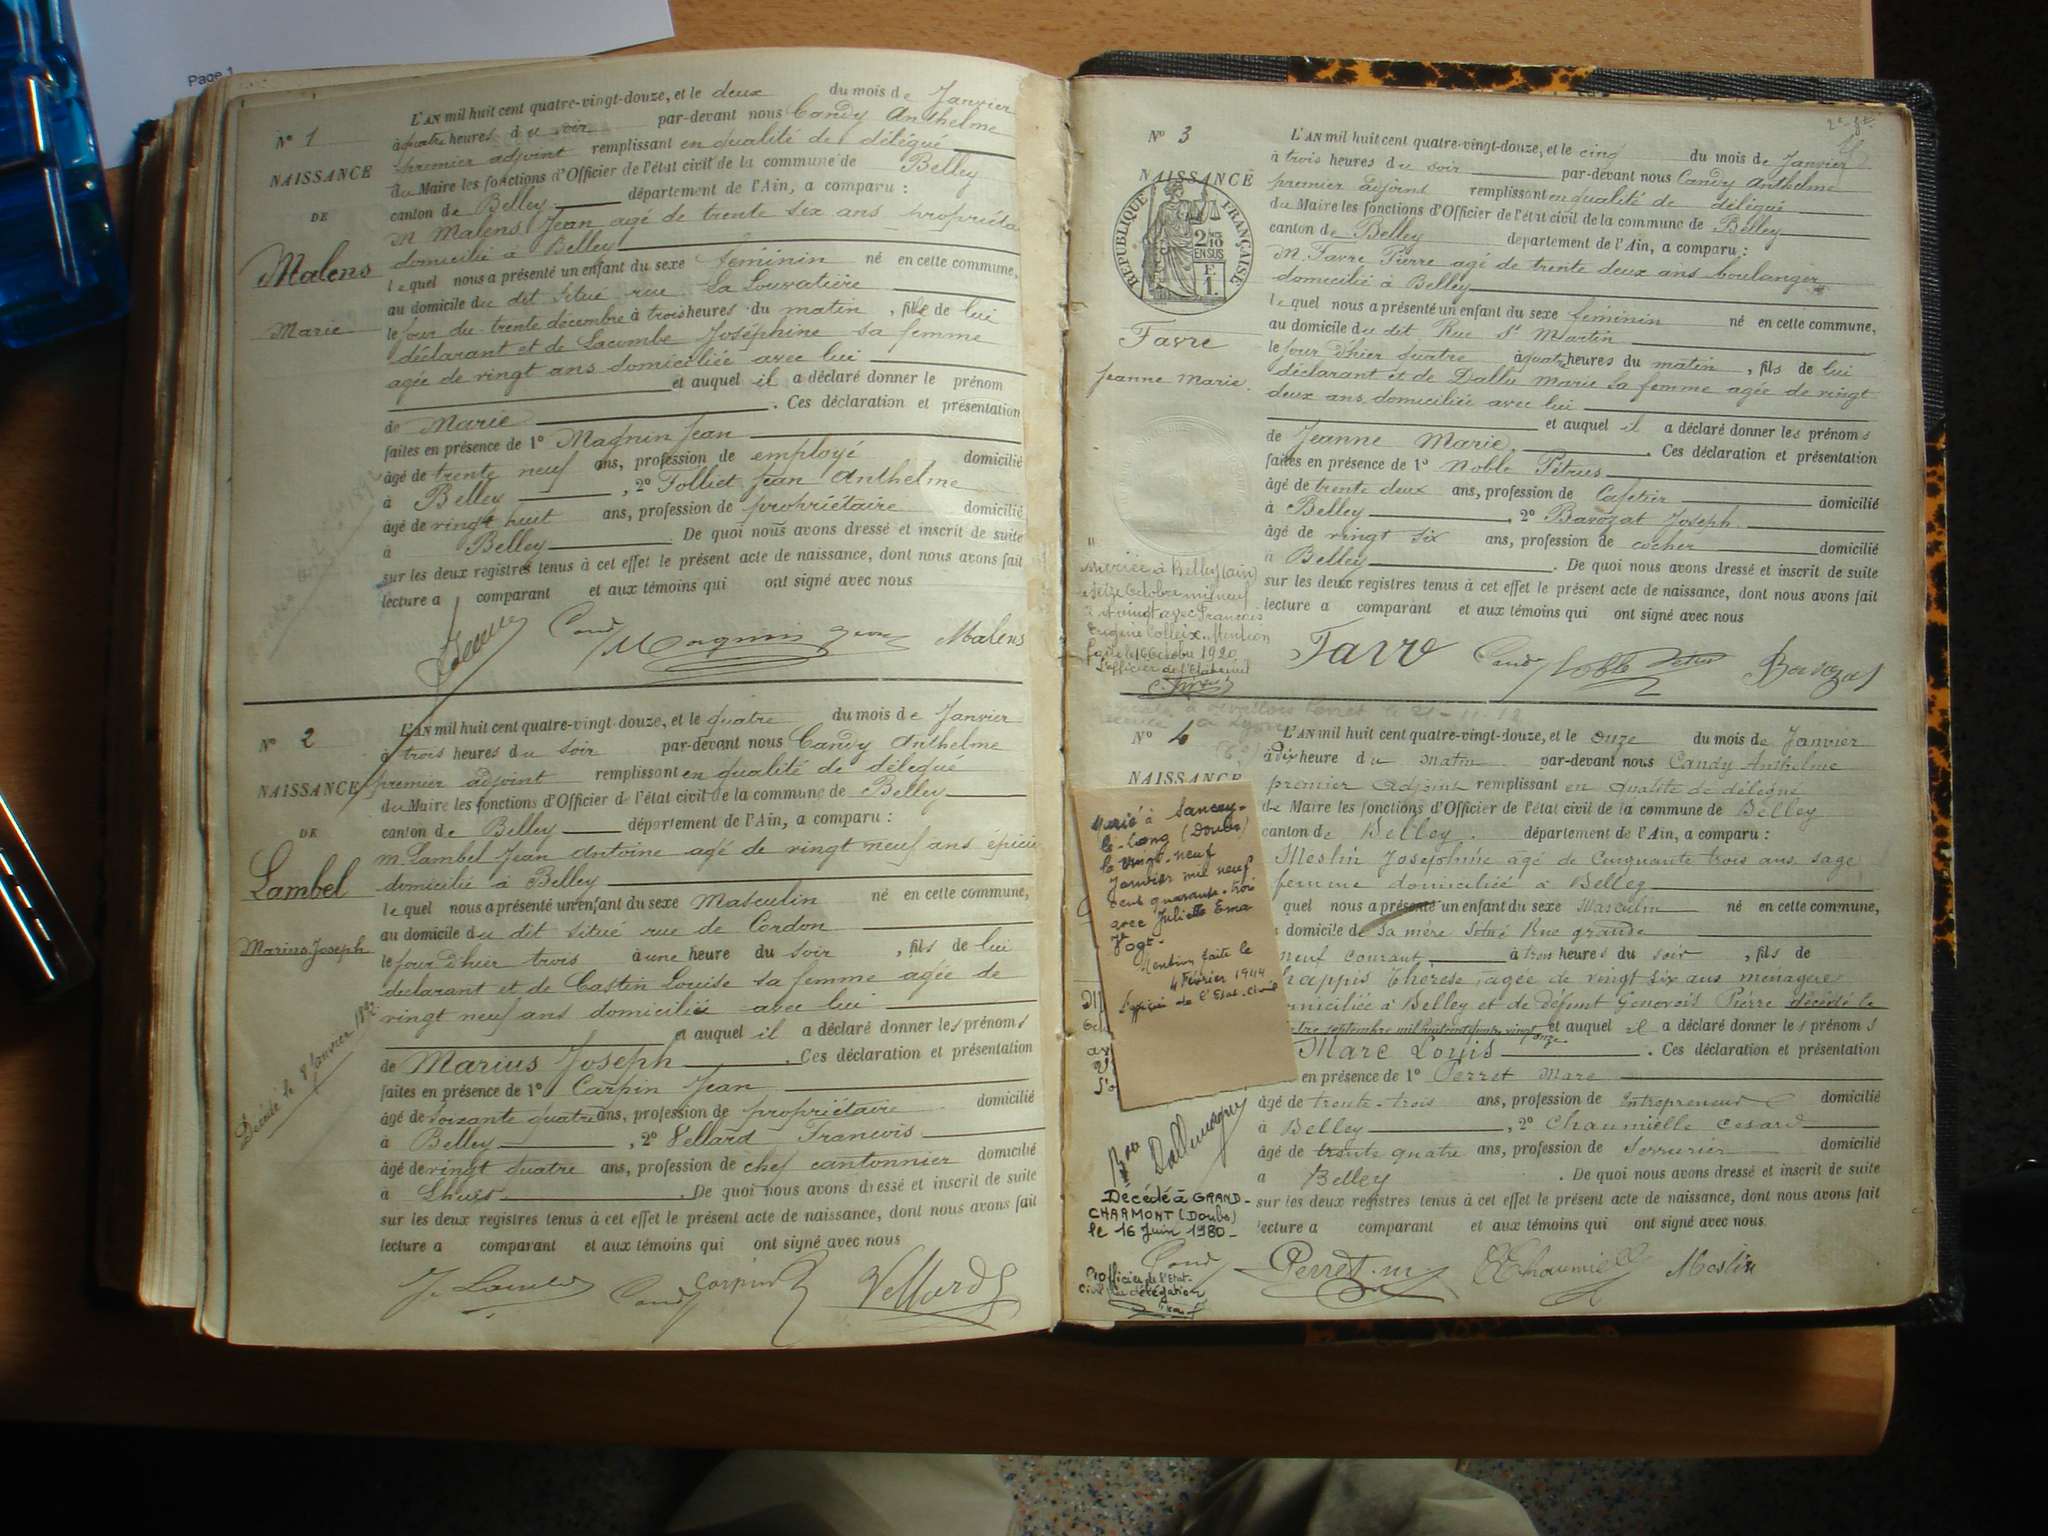 Page 1
L'AN mil huit cent quatre-vingt-douze, et le deux du mois de Janvier
N° 1
à quatre heures du soir par-devant nous Candy Anthelme
premier adjoint remplissant en qualité de délégué
NAISSANCE
du Maire les fonctions d'Officier de l'état civil de la commune de Belley
DE
canton de Belley département de l'Ain, a comparu :
M Malens Jean agé de trente six ans propriétai
Malens
domicilié à Belley
lequel nous a présenté un enfant du sexe féminin né en cette commune,
au domicile du dit situé rue La Louvatière
Marie
le jour du trente décembre à trois heures du matin, fils de lui
déclarant et de Lacombe Joséphine sa femme
agée de vingt ans domiciliée avec lui
et auquel il a déclaré donner le prénom
de Marie. Ces déclaration et présentation
faites en présence de 1° Magnin Jean
âgé de trente neuf ans, profession de employé domicilié
à Belley, 2° Folliet Jean Anthelme
âgé de vingt huit ans, profession de propriétaire domicilié
à Belley De quoi nous avons dressé et inscrit de suite
sur les deux registres tenus à cet effet le présent acte de naissance, dont nous avons fait
lecture a comparant et aux témoins qui ont signé avec nous
Candy Magnin Jean Malens
N° 2
L'AN mil huit cent quatre-vingt-douze, et le quatre du mois de Janvier
à trois heures du soir par-devant nous Candy Anthelme
NAISSANCE
premier adjoint remplissant en qualité de délégué
du Maire les fonctions d'Officier de l'état civil de la commune de Belley
DE
canton de Belley département de l'Ain, a comparu :
M. Lambel Jean Antoine agé de vingt neuf ans épicie
Lambel
domicilié à Belley
lequel nous a présenté un enfant du sexe Masculin né en cette commune,
au domicile du dit situé rue de Cordon
Marius Joseph
le jour d'hier trois à une heure du soir, fils de lui
déclarant et de Castin Louise sa femme agée de
vingt neuf ans domiciliée avec lui
et auquel il a déclaré donner les prénoms
de Marius Joseph. Ces déclaration et présentation
Décédé le 8 Janvier 1892
faites en présence de 1° Carpin Jean
âgé de soixante quatre ans, profession de propriétaire domicilié
à Belley, 2° Vellard Francois
âgé de vingt quatre ans, profession de chef cantonnier domicilié
à Lhuis. De quoi nous avons dressé et inscrit de suite
sur les deux registres tenus à cet effet le présent acte de naissance, dont nous avons fait
lecture a comparant et aux témoins qui ont signé avec nous
J. Lambel Candy Carpin Vellard
N° 3
L'AN mil huit cent quatre-vingt-douze, et le cinq du mois de Janvier
à trois heures du soir par-devant nous Candy Anthelme
NAISSANCE
premier adjoint remplissant en qualité de délégué
du Maire les fonctions d'Officier de l'état civil de la commune de Belley
RÉPUBLIQUE FRANÇAISE
2/10 EN SUS
F. 1.
canton de Belley département de l'Ain, a comparu :
M. Favre Pierre agé de trente deux ans boulanger
domicilié à Belley
lequel nous a présenté un enfant du sexe féminin né en cette commune,
au domicile du dit Rue St Martin
Favre
le jour d'hier quatre à quatre heures du matin, fils de lui
Jeanne Marie.
déclarant et de Dallu Marie sa femme agée de vingt
deux ans domiciliée avec lui
et auquel il a déclaré donner les prénoms
de Jeanne Marie. Ces déclaration et présentation
faites en présence de 1° Noble Pétrus
âgé de trente deux ans, profession de Cafetier domicilié
à Belley, 2° Bavozat Joseph
âgé de vingt six ans, profession de cocher domicilié
à Belley. De quoi nous avons dressé et inscrit de suite
sur les deux registres tenus à cet effet le présent acte de naissance, dont nous avons fait
lecture a comparant et aux témoins qui ont signé avec nous
Mariée à Belley (Ain)
le seize Octobre mil neuf
cent vingt avec François
Eugène Colleix. Mention
faite le 16 Octobre 1920
L'officier de l'Etat civil
Favre Candy Noble Petrus Bavozat
N° 4
L'AN mil huit cent quatre-vingt-douze, et le onze du mois de Janvier
à dix heure du matin par-devant nous Candy Anthelme
NAISSANCE
premier adjoint remplissant en qualité de délégué
de Maire les fonctions d'Officier de l'état civil de la commune de Belley
canton de Belley. département de l'Ain, a comparu :
Meslin Josephine agé de Cinquante trois ans sage
femme domiciliée à Belley
quel nous a présenté un enfant du sexe Masculin né en cette commune,
domicile de sa mère situé Rue grande
neuf courant, à trois heures du soir, fils de
happis Thérèse, agée de vingt six ans menagere
miciliée à Belley et de défunt Genevois Pierre décédé le
septembre mil huit cent quatre vingt onze et auquel il a déclaré donner les prénoms
Marc Louis. Ces déclaration et présentation
en présence de 1° Perret Marc
âgé de trente-trois ans, profession de Entrepreneur domicilié
à Belley, 2° Chaumielle Cesard
âgé de trente quatre ans, profession de Serrurier domicilié
a Belley. De quoi nous avons dressé et inscrit de suite
sur les deux registres tenus à cet effet le présent acte de naissance, dont nous avons fait
lecture a comparant et aux témoins qui ont signé avec nous
Marié à Sancey-
le-Long (Doubs)
le vingt-neuf
Janvier mil neuf
cent quarante-trois
avec Juliette Ema
Vogt.
Mention faite le
4 Février 1944
l'officier de l'Etat-civil
Décédé à GRAND-
CHARMONT (Doubs)
le 16 Juin 1980-
l'officier de l'Etat-
Civil par délégation
Candy Perret m Chaumielle Meslin